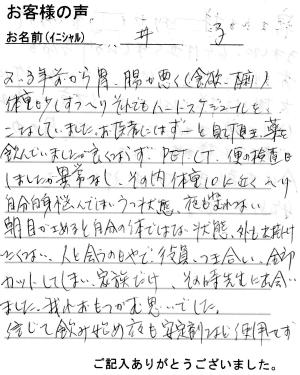 お客様の声
お名前(イニシャル) 井 子
2、3年前から胃、腸が悪く(食欲、便)
体重も少しずつへりそれでもハードスケジュールを
こなしていました。お医者にはずーと 薬を
飲んでいましたが良くならず、PET、CT、便の検査も
しましたが異常なし、その内体重10k近くへり
自分自身悩んでしまいうつ状態、夜も
朝目がさめると自分の体ではない状態、外も出掛け
たくない、人と会うのもやで、役員、つき合い、全部
カットしてしまい、家族だけ、その時先生に出会い
ました。我 おもつかむ思いでした。
信じて飲み始め夜も安定剤 など使用せず
ご記入ありがとうございました。